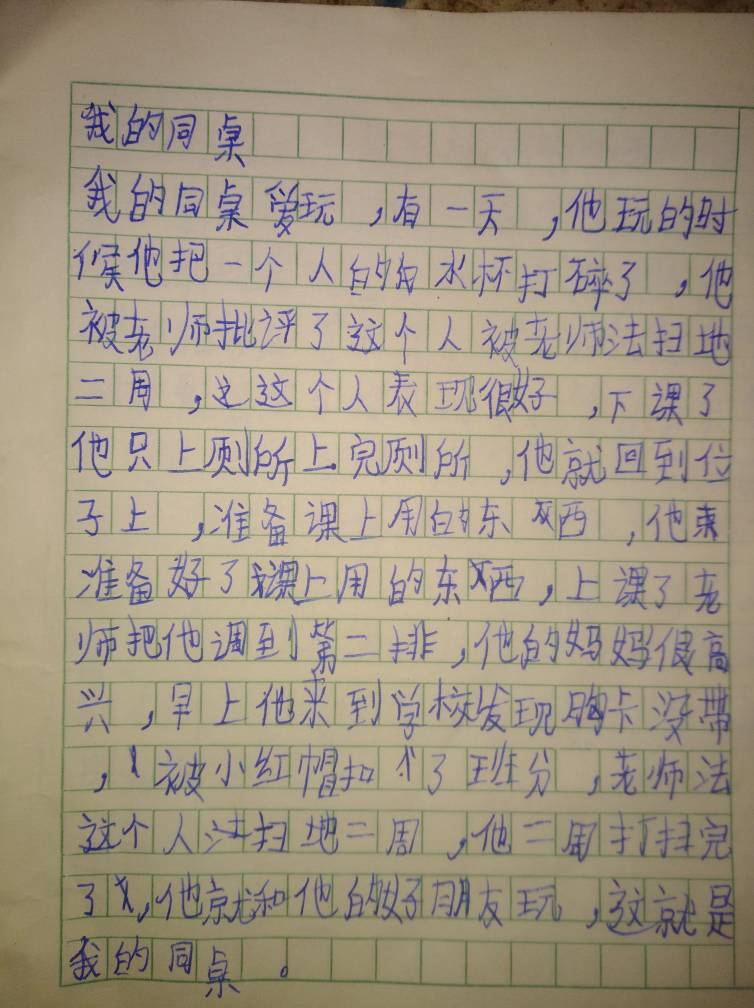 我的同桌
我的同桌爱玩,有一天,他玩的时
候他把一个人的的水杯打碎了,他
被老师批评了这个人被老师法扫地
二周,这个人表现很好,下课了
他只上厕所上完厕所,他就回到位
子上,准备课上用的东西,他
准备好了课上用的东西,上课了老
师把他调到第二排,他的妈妈很高
兴,早上他来到学校发现胸卡没带
,被小红帽扣了班分,老师法
这个人法扫地二周,他二周打扫完
了,他就和他的好朋友玩,这就是
我的同桌。